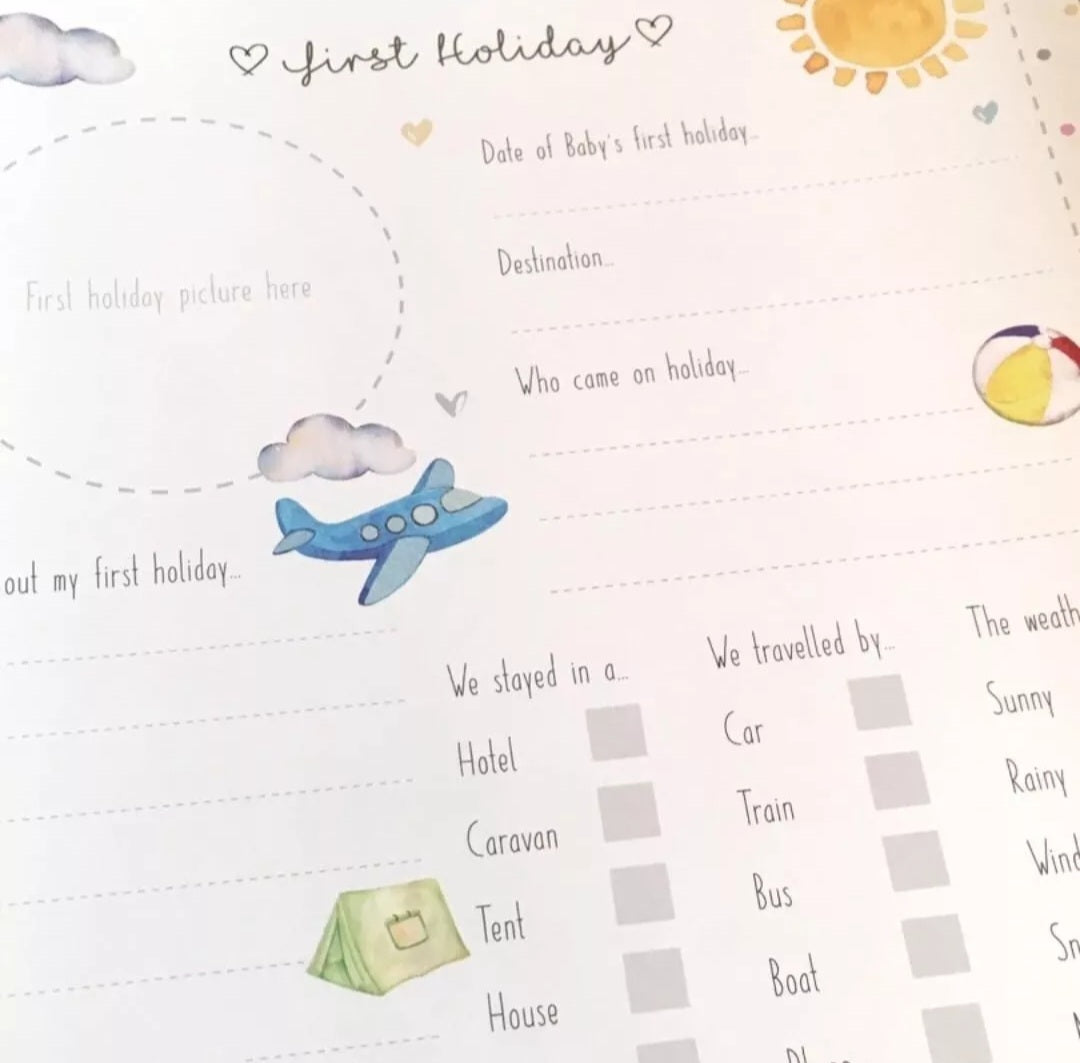 first Holiday
Date of Baby's first holiday...
First holiday picture here
Destination...
Who came on holiday...
out my first holiday...
We stayed in a...
Hotel
Caravan
Tent
House
We travelled by...
Car
Train
Bus
Boat
The weath
Sunny
Rainy
Wind
Sn